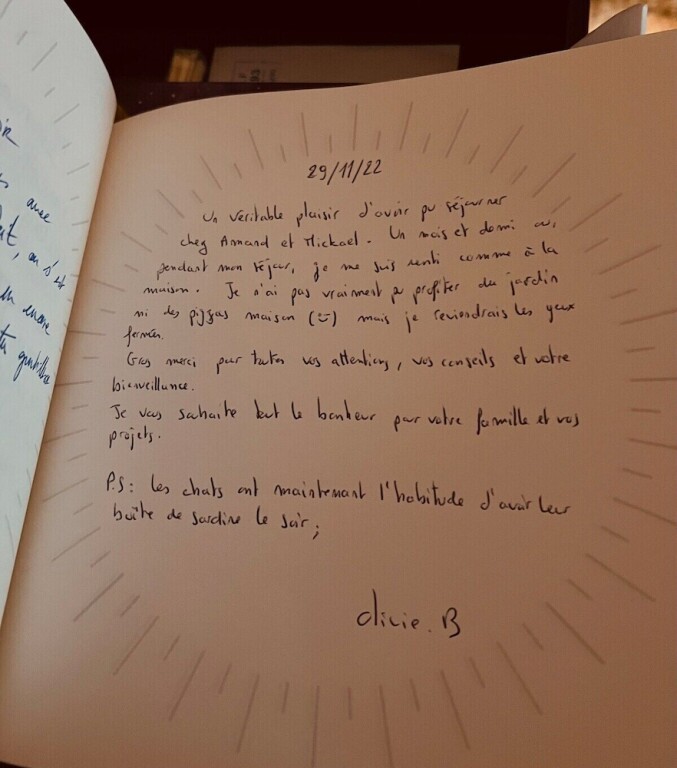 29/11/22
Un veritable plaisir d'avoir pu séjourner
chez Armand et Mickael. Un mois et demi où,
pendant mon séjour, je me suis senti comme à la
maison. Je n'ai pas vraiment pu profiter du jardin
ni des pizzas maison (☺) mais je reviendrais les yeux
fermés.
Gros merci pour toutes vos attentions, vos conseils et votre
bienveillance.
Je vous souhaite tout le bonheur pour votre famille et vos
projets.
P.S: les chats ont maintenant l'habitude d'avoir leur
boîte de sardine le soir;
B
avec
on s'est
encore